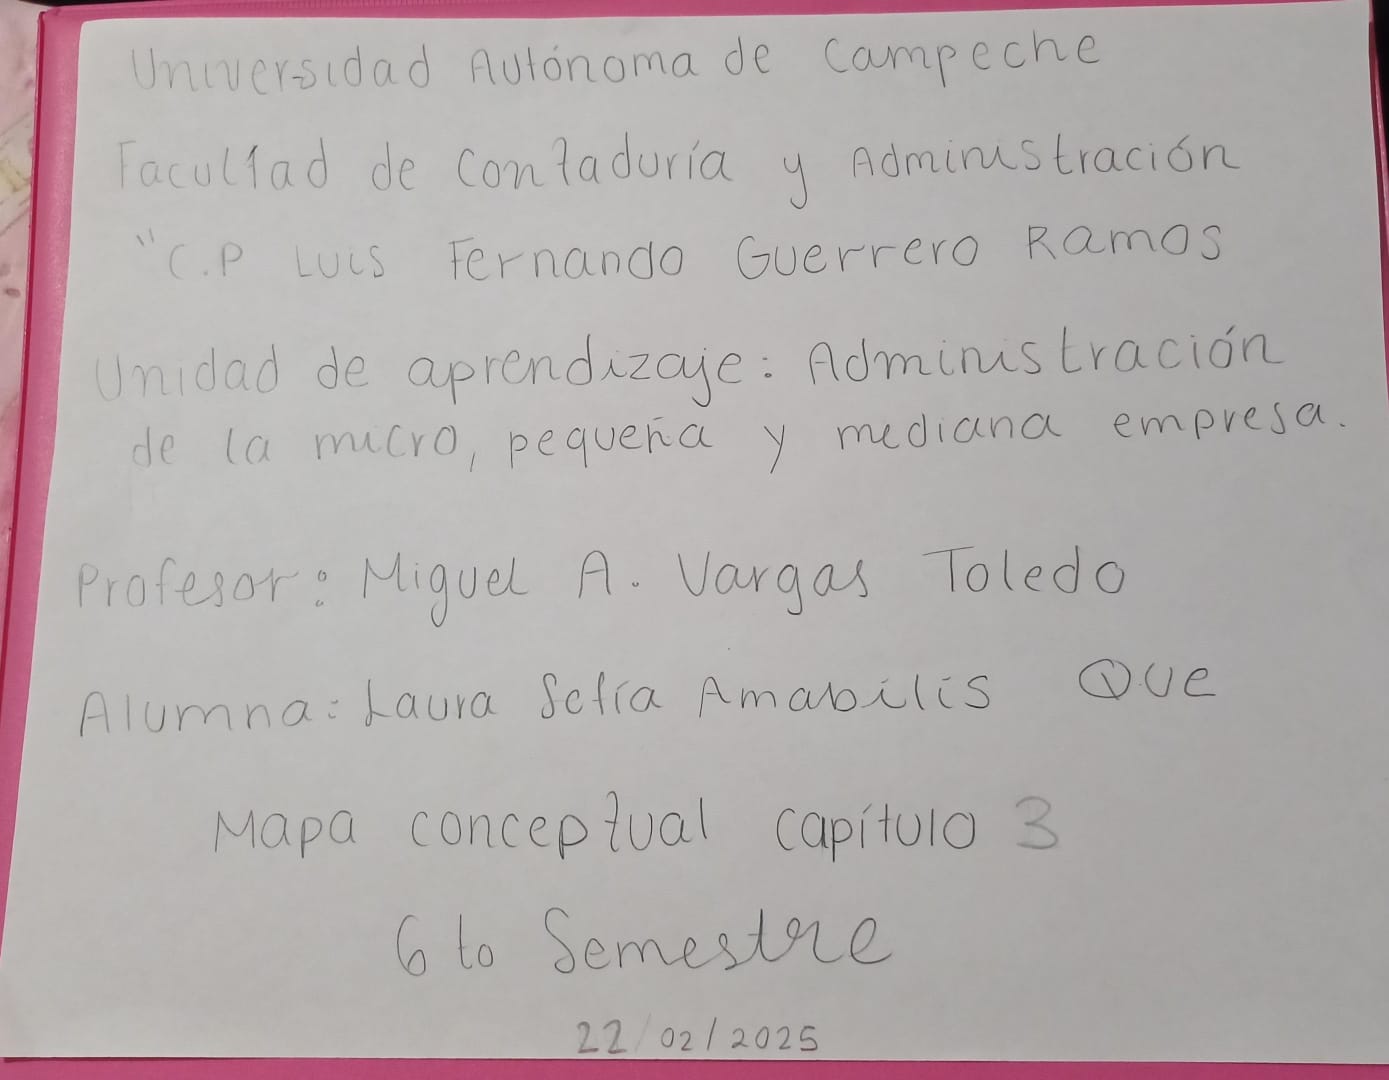 Universidad Autónoma de Campeche
Facultad de Contaduría y Administración
"C.P Luis Fernando Guerrero Ramos
Unidad de aprendizaje: Administración
de la micro, pequeña y mediana empresa.
Profesor: Miguel A. Vargas Toledo
Alumna: Laura Sofía Amabilis Que
Mapa conceptual capítulo 3
6to Semestre
22/02/2025